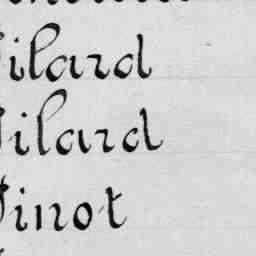 ilard
ilard
inot